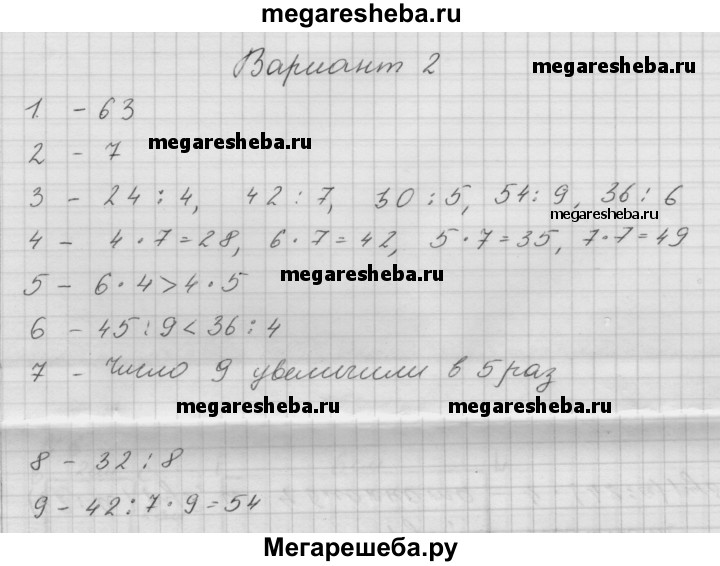 megaresheba.ru
Вариант 2
megaresheba.ru
1. - 63
2 - 7
megaresheba.ru
3 - 24 : 4, 42 : 7, 30 : 5, 54 : 9, 36 : 6
megaresheba.ru
4 - 4 · 7 = 28, 6 · 7 = 42, 5 · 7 = 35, 7 · 7 = 49
5 - 6 · 4 > 4 · 5
megaresheba.ru
6 - 45 : 9 < 36 : 4
7 - Число 9 увеличили в 5 раз
megaresheba.ru megaresheba.ru
8 - 32 : 8
9 - 42 : 7 · 9 = 54
Мегарешеба.ру